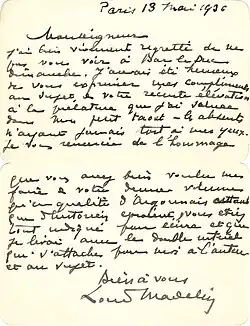 Paris 13 mai 1936
Monseigneur
j'ai bien vivement regretté de ne
pas vous voir à Bar le Duc
dimanche. J'aurais été heureux
de vous exprimer mes compliments
au sujet de votre récente élévation
à la prélature que j'ai saluée
dans mon petit toast — les absents
n'ayant jamais tort à mes yeux.
Je vous remercie de l'hommage
que vous avez bien voulu me
faire de votre dernier volume
qu'en qualité d'Argonnais autant
que d'historien vous étiez
tout indiqué pour écrire et que
je lirai avec le double intérêt
qui s'attache pour moi à l'auteur
et au sujet.
Bien à vous
Louis Madelin